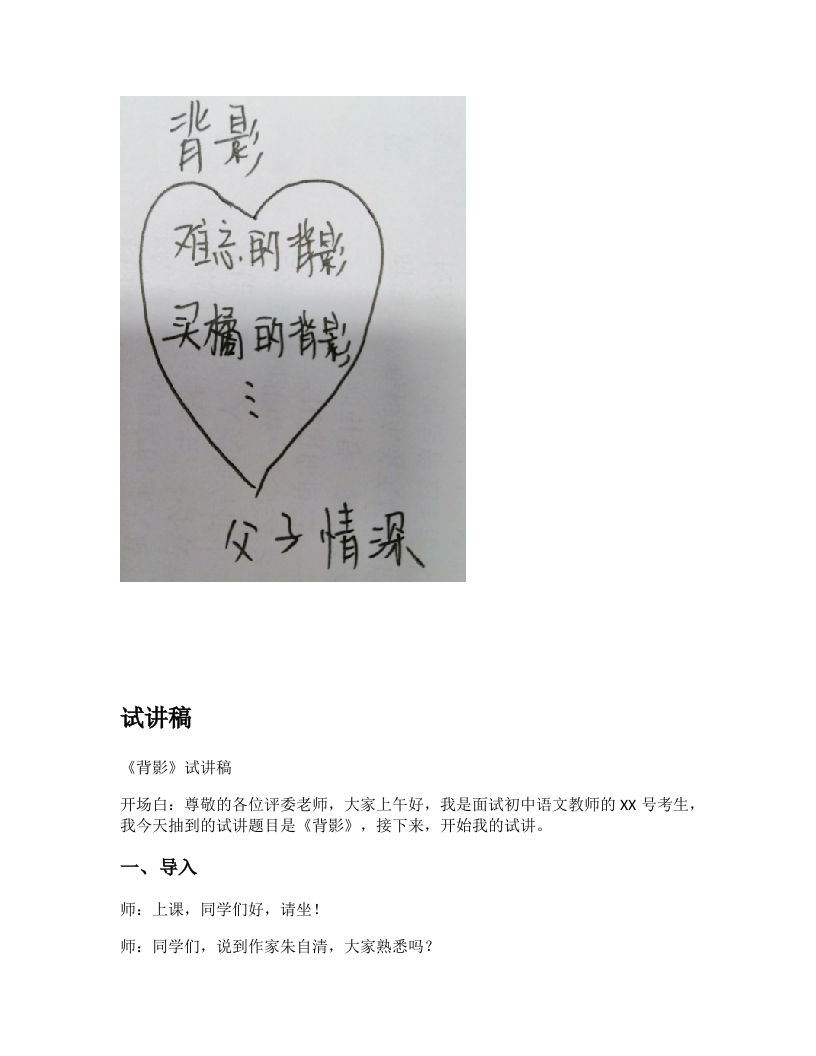 背影
难忘的背影
买橘的背影
⋮
父子情深
试讲稿
《背影》试讲稿
开场白：尊敬的各位评委老师，大家上午好，我是面试初中语文教师的 XX 号考生，
我今天抽到的试讲题目是《背影》，接下来，开始我的试讲。
一、导入
师：上课，同学们好，请坐！
师：同学们，说到作家朱自清，大家熟悉吗？